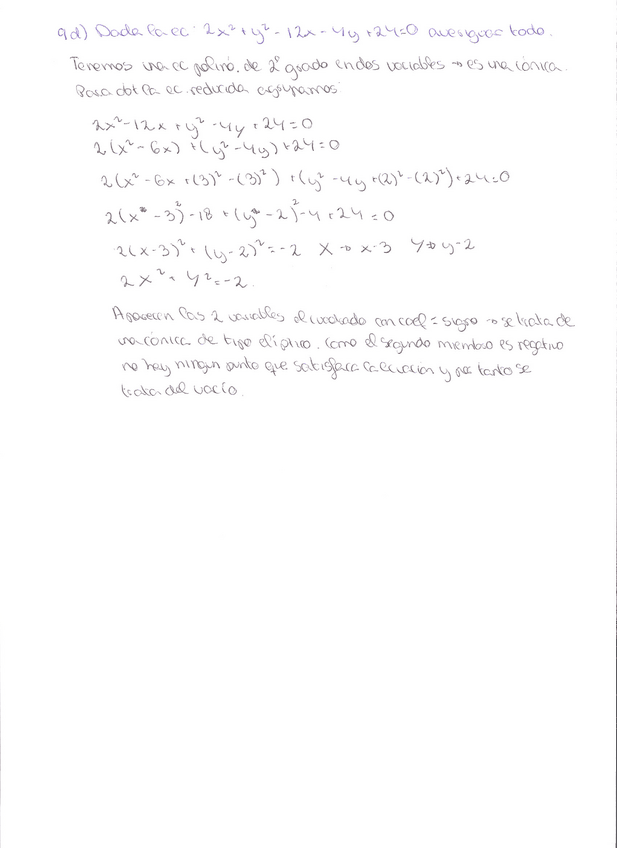 9d) Dada la ec: 2x² + y² - 12x - 4y + 24 = 0 averiguar todo.
Tenemos una ec polinó. de 2º grado en dos variables → es una cónica.
Para obt la ec. reducida agrupamos:
2x² - 12x + y² - 4y + 24 = 0
2(x² - 6x) + (y² - 4y) + 24 = 0
2(x² - 6x + (3)² - (3)²) + (y² - 4y + (2)² - (2)²) + 24 = 0
2(x - 3)² - 18 + (y - 2)² - 4 + 24 = 0
2(x-3)² + (y-2)² = -2 X → x-3 Y → y-2
2X² + Y² = -2.
Aparecen las 2 variables al cuadrado con coef = signo → se trata de
una cónica de tipo elíptico. Como el segundo miembro es negativo
no hay ningún punto que satisfaga la ecuacion y por tanto se
trata del vacío.